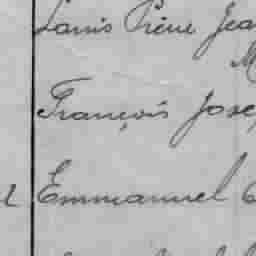 Louis Pierre Jea
M
François Jose
Emmanuel